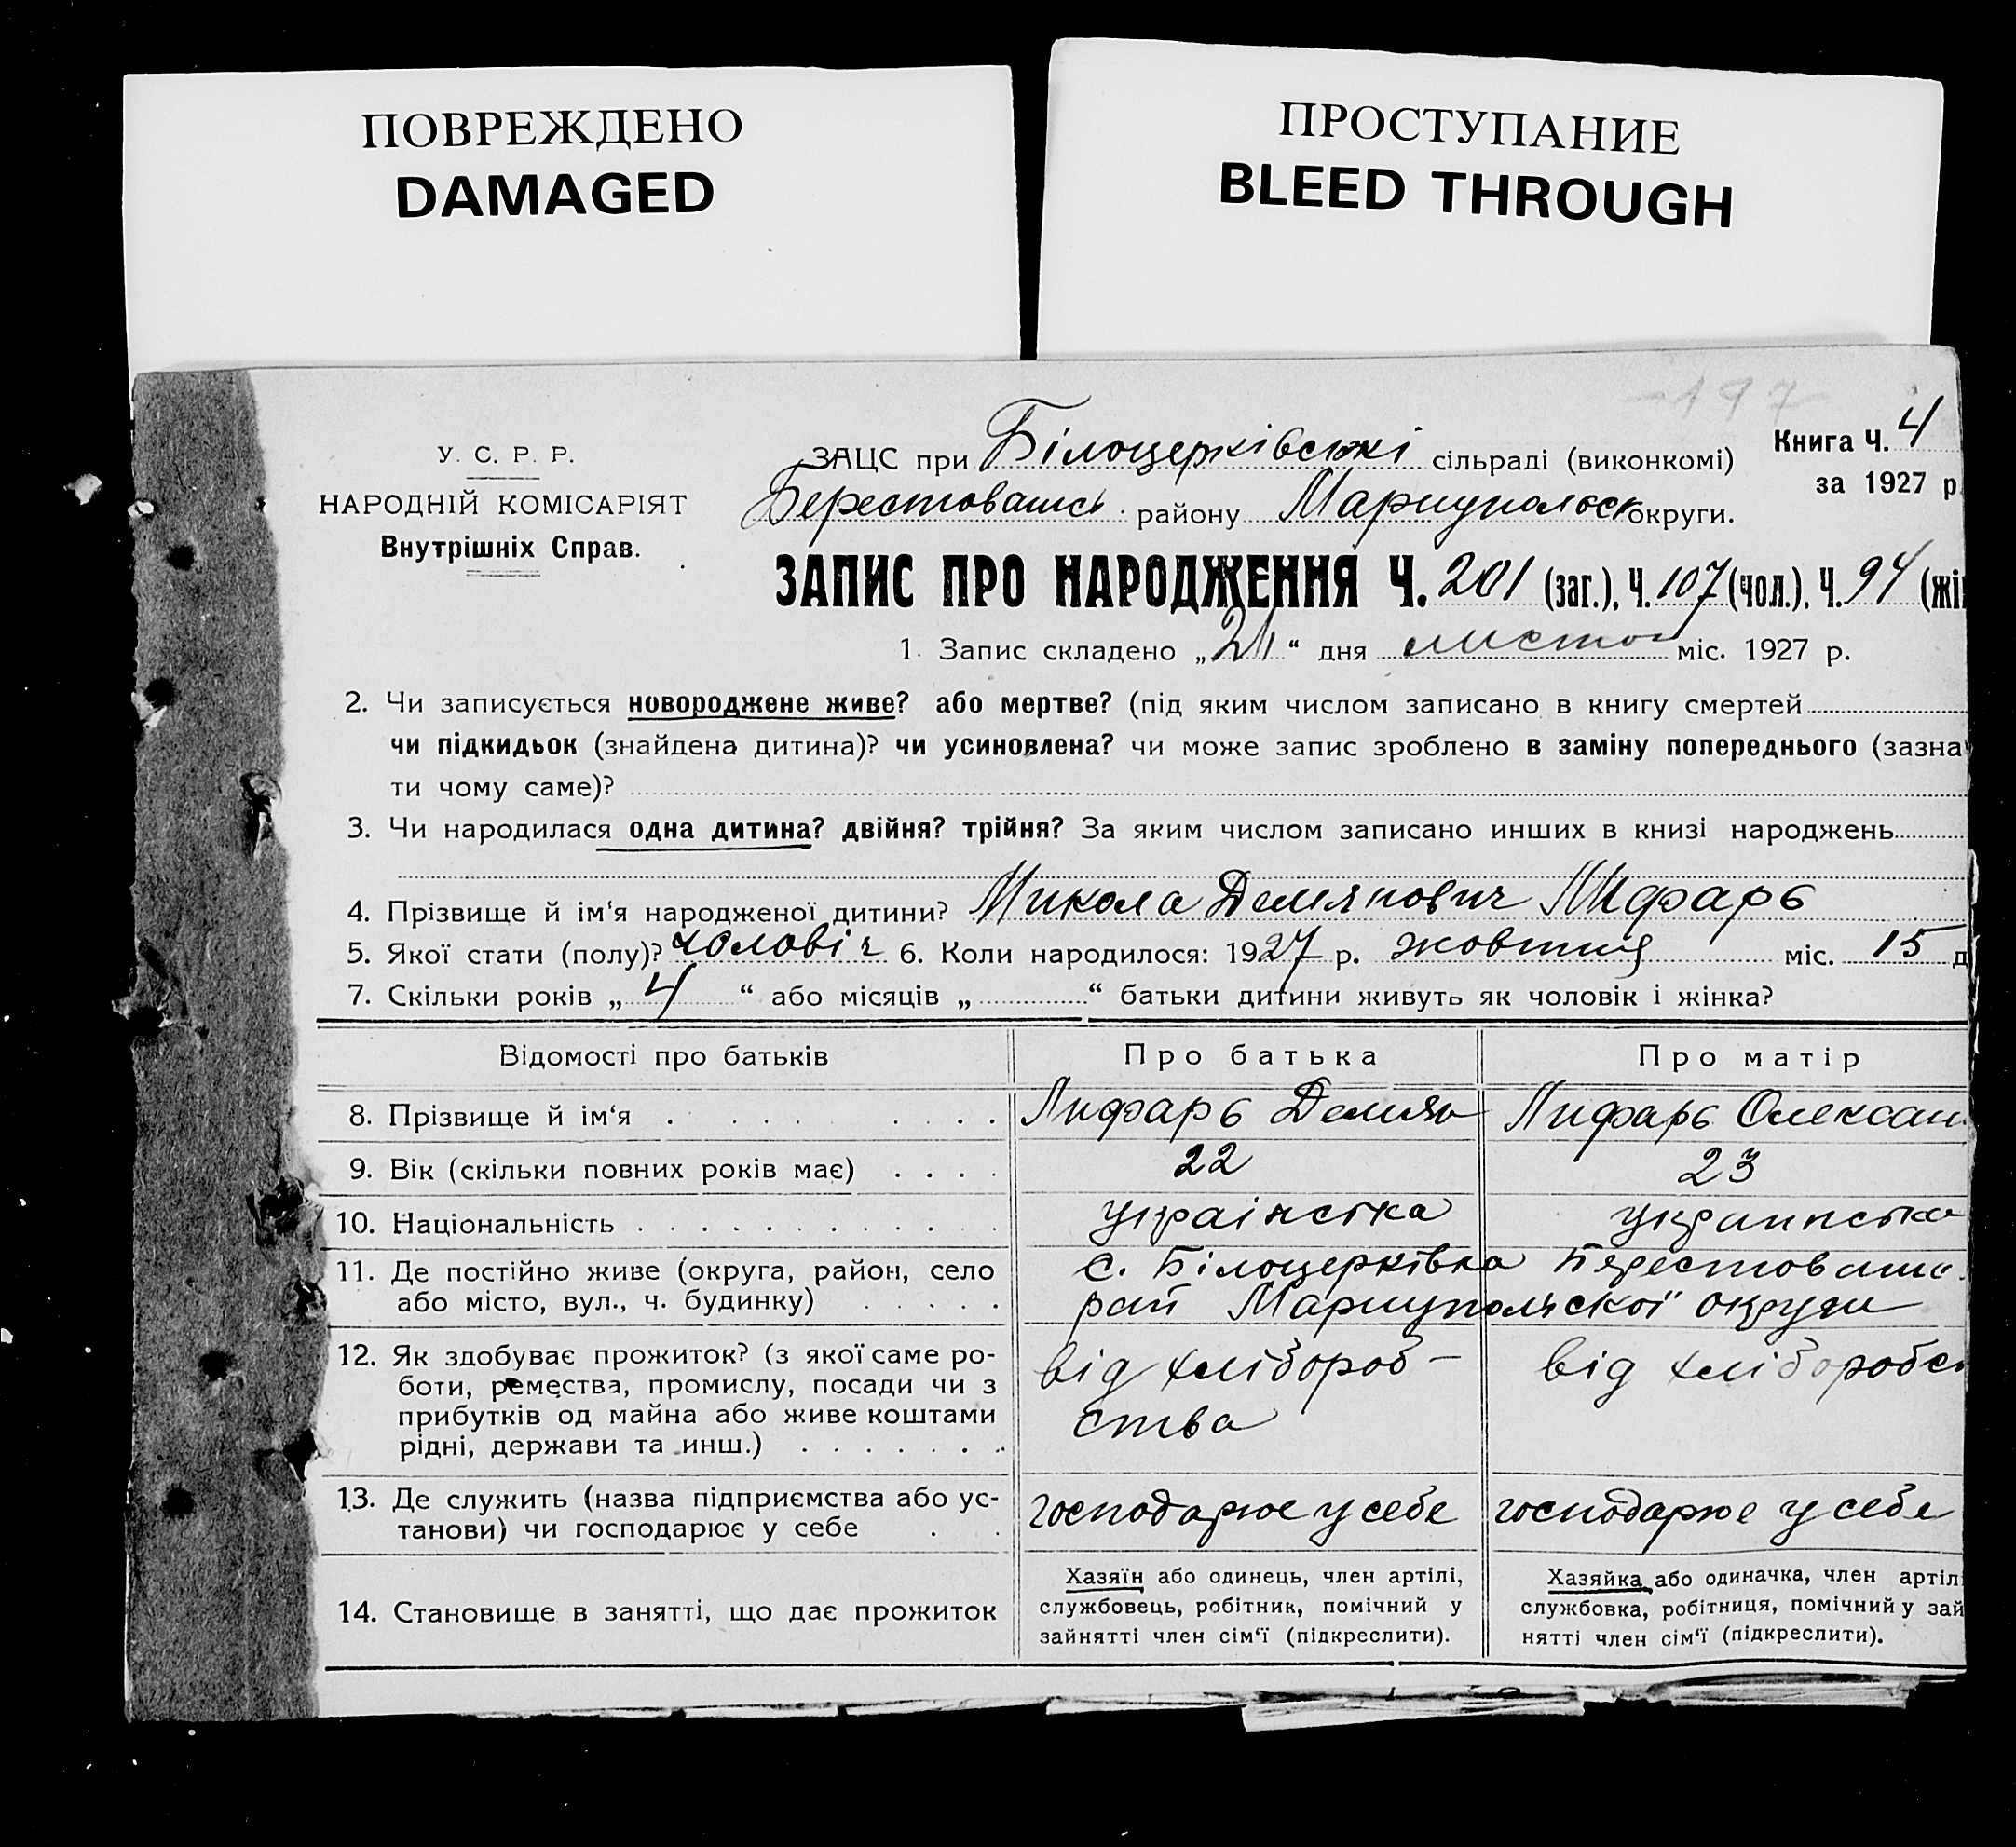 ПОВРЕЖДЕНО
DAMAGED
ПРОСТУПАНИЕ
BLEED THROUGH
197
У. С. Р. Р.
НАРОДНІЙ КОМІСАРІЯТ
Внутрішніх Справ.
ЗАЦС при Білоцерківські сільраді (виконкомі)
Книга Ч. 4
за 1927 р.
Берестованск району Мариупольск округи.
ЗАПИС ПРО НАРОДЖЕННЯ Ч. 201 (заг.), Ч. 107 (чол.), Ч. 94 (жі
1. Запис складено „21“ дня листоп міс. 1927 р.
2. Чи записується новороджене живе? або мертве? (під яким числом записано в книгу смертей
чи підкидьок (знайдена дитина)? чи усиновлена? чи може запис зроблено в заміну попереднього (зазна
ти чому саме)?
3. Чи народилася одна дитина? двійня? трійня? За яким числом записано инших в книзі народжень
4. Прізвище й ім‘я народженої дитини? Микола Демянович Лифарь
5. Якої стати (полу)? чоловіч 6. Коли народилося: 1927 р. жовтня міс. 15 д
7. Скільки років „ 4 “ або місяців „ “ батьки дитини живуть як чоловік і жінка?
Відомості про батьків Про батька Про матір
8. Прізвище й ім‘я Лифарь Демян Лифарь Олексан
9. Вік (скільки повних років має) 22 23
10. Національність українська украинська
11. Де постійно живе (округа, район, село с. Білоцерківка Берестованс.
або місто, вул., ч. будинку) рай Мариупольскої округи
12. Як здобуває прожиток? (з якої саме ро- від хлібороб- від хлібороbс
боти, ремества, промислу, посади чи з ства
прибутків од майна або живе коштами
рідні, держави та инш.)
13. Де служить (назва підприємства або ус- господарює у себе господарює у себе
танови) чи господарює у себе
Хазяїн або одинець, член артілі, Хазяйка або одиначка, член артіл
14. Становище в занятті, що дає прожиток службовець, робітник, помічний у службовка, робітниця, помічний у зай
зайнятті член сім‘ї (підкреслити). нятті член сім‘ї (підкреслити).